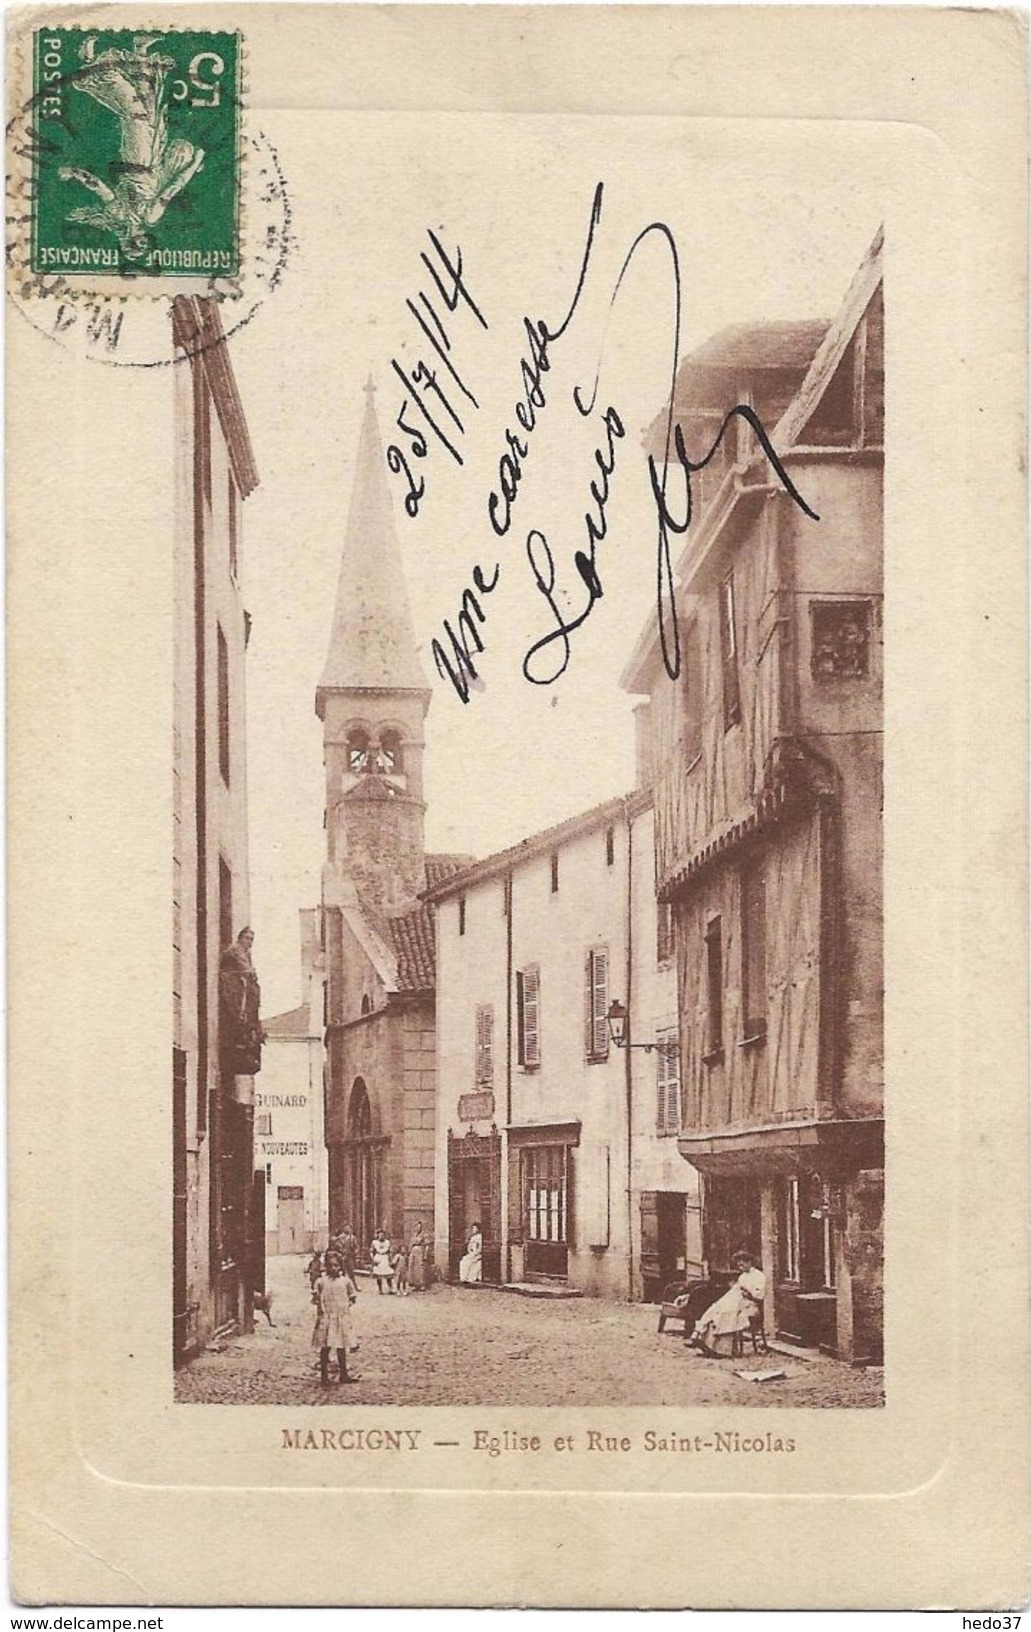 5c
POSTES
REPUBLIQUE FRANÇAISE
25/7/14
Une caresse
Louis
GUINARD
NOUVEAUTES
MARCIGNY — Eglise et Rue Saint-Nicolas
delcampe.net
hedo37